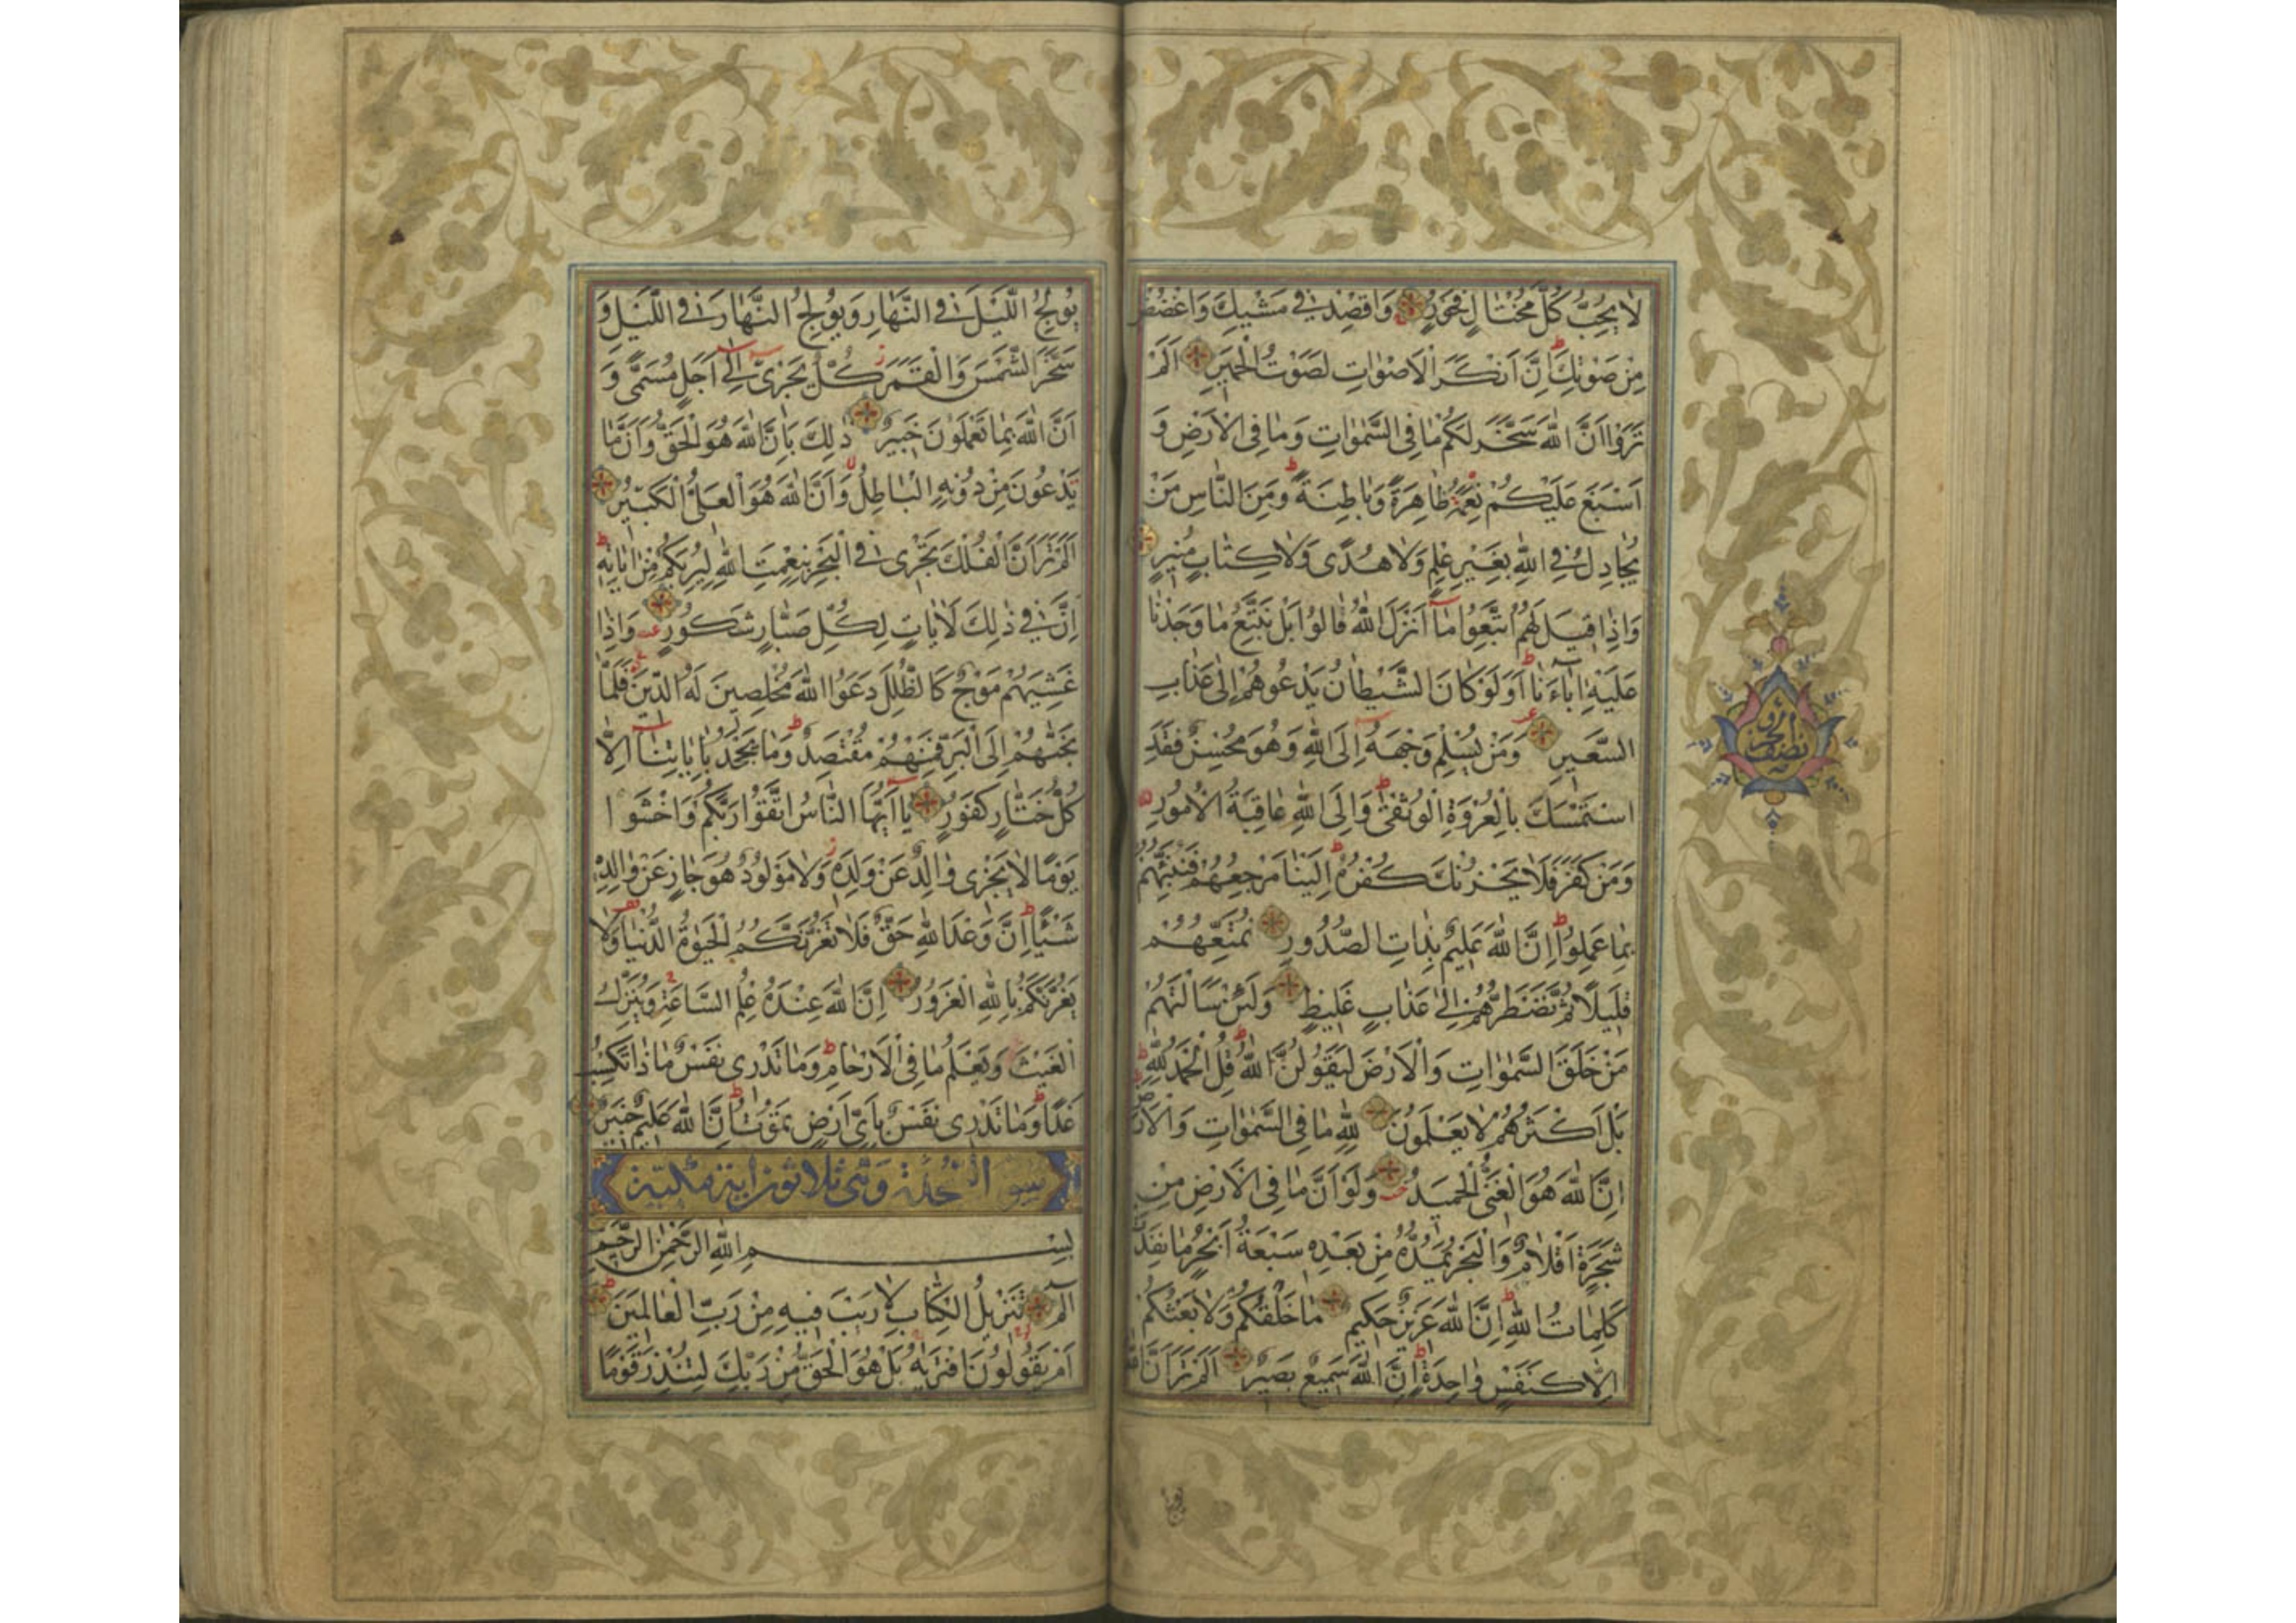 لَا يُحِبُّ كُلَّ مُخْتَالٍ فَخُورٍ وَاقْصِدْ فِي مَشْيِكَ وَاغْضُضْ
مِنْ صَوْتِكَ اِنَّ اَنْكَرَ الْاَصْوَاتِ لَصَوْتُ الْحَمِيرِ اَلَمْ
تَرَوْا اَنَّ اللّٰهَ سَخَّرَ لَكُمْ مَا فِي السَّمٰوَاتِ وَمَا فِي الْاَرْضِ وَ
اَسْبَغَ عَلَيْكُمْ نِعَمَهُ ظَاهِرَةً وَبَاطِنَةً وَمِنَ النَّاسِ مَنْ
يُجَادِلُ فِي اللّٰهِ بِغَيْرِ عِلْمٍ وَلَا هُدًى وَلَا كِتَابٍ مُنِيرٍ
وَاِذَا قِيلَ لَهُمُ اتَّبِعُوا مَا اَنْزَلَ اللّٰهُ قَالُوا بَلْ نَتَّبِعُ مَا وَجَدْنَا
عَلَيْهِ اٰبَاءَنَا اَوَلَوْ كَانَ الشَّيْطَانُ يَدْعُوهُمْ اِلٰى عَذَابِ
السَّعِيرِ وَمَنْ يُسْلِمْ وَجْهَهُ اِلَى اللّٰهِ وَهُوَ مُحْسِنٌ فَقَدِ
اسْتَمْسَكَ بِالْعُرْوَةِ الْوُثْقٰى وَاِلَى اللّٰهِ عَاقِبَةُ الْاُمُورِ
وَمَنْ كَفَرَ فَلَا يَحْزُنْكَ كُفْرُهُ اِلَيْنَا مَرْجِعُهُمْ فَنُنَبِّئُهُمْ
بِمَا عَمِلُوا اِنَّ اللّٰهَ عَلِيمٌ بِذَاتِ الصُّدُورِ نُمَتِّعُهُمْ
قَلِيلًا ثُمَّ نَضْطَرُّهُمْ اِلٰى عَذَابٍ غَلِيظٍ وَلَئِنْ سَاَلْتَهُمْ
مَنْ خَلَقَ السَّمٰوَاتِ وَالْاَرْضَ لَيَقُولُنَّ اللّٰهُ قُلِ الْحَمْدُ لِلّٰهِ
بَلْ اَكْثَرُهُمْ لَا يَعْلَمُونَ لِلّٰهِ مَا فِي السَّمٰوَاتِ وَالْاَرْضِ
اِنَّ اللّٰهَ هُوَ الْغَنِيُّ الْحَمِيدُ وَلَوْ اَنَّ مَا فِي الْاَرْضِ مِنْ
شَجَرَةٍ اَقْلَامٌ وَالْبَحْرُ يَمُدُّهُ مِنْ بَعْدِهِ سَبْعَةُ اَبْحُرٍ مَا نَفِدَتْ
كَلِمَاتُ اللّٰهِ اِنَّ اللّٰهَ عَزِيزٌ حَكِيمٌ مَا خَلْقُكُمْ وَلَا بَعْثُكُمْ
اِلَّا كَنَفْسٍ وَاحِدَةٍ اِنَّ اللّٰهَ سَمِيعٌ بَصِيرٌ اَلَمْ تَرَ اَنَّ اللّٰهَ
يُولِجُ اللَّيْلَ فِي النَّهَارِ وَيُولِجُ النَّهَارَ فِي اللَّيْلِ وَ
سَخَّرَ الشَّمْسَ وَالْقَمَرَ كُلٌّ يَجْرِي اِلٰى اَجَلٍ مُسَمًّى وَ
اَنَّ اللّٰهَ بِمَا تَعْمَلُونَ خَبِيرٌ ذٰلِكَ بِاَنَّ اللّٰهَ هُوَ الْحَقُّ وَاَنَّ مَا
يَدْعُونَ مِنْ دُونِهِ الْبَاطِلُ وَاَنَّ اللّٰهَ هُوَ الْعَلِيُّ الْكَبِيرُ
اَلَمْ تَرَ اَنَّ الْفُلْكَ تَجْرِي فِي الْبَحْرِ بِنِعْمَتِ اللّٰهِ لِيُرِيَكُمْ مِنْ اٰيَاتِهِ
اِنَّ فِي ذٰلِكَ لَاٰيَاتٍ لِكُلِّ صَبَّارٍ شَكُورٍ وَاِذَا
غَشِيَهُمْ مَوْجٌ كَالظُّلَلِ دَعَوُا اللّٰهَ مُخْلِصِينَ لَهُ الدِّينَ فَلَمَّا
نَجّٰهُمْ اِلَى الْبَرِّ فَمِنْهُمْ مُقْتَصِدٌ وَمَا يَجْحَدُ بِاٰيَاتِنَا اِلَّا
كُلُّ خَتَّارٍ كَفُورٍ يَا اَيُّهَا النَّاسُ اتَّقُوا رَبَّكُمْ وَاخْشَوْا
يَوْمًا لَا يَجْزِي وَالِدٌ عَنْ وَلَدِهِ وَلَا مَوْلُودٌ هُوَ جَازٍ عَنْ وَالِدِهِ
شَيْئًا اِنَّ وَعْدَ اللّٰهِ حَقٌّ فَلَا تَغُرَّنَّكُمُ الْحَيٰوةُ الدُّنْيَا وَلَا
يَغُرَّنَّكُمْ بِاللّٰهِ الْغَرُورُ اِنَّ اللّٰهَ عِنْدَهُ عِلْمُ السَّاعَةِ وَيُنَزِّلُ
الْغَيْثَ وَيَعْلَمُ مَا فِي الْاَرْحَامِ وَمَا تَدْرِي نَفْسٌ مَاذَا تَكْسِبُ
غَدًا وَمَا تَدْرِي نَفْسٌ بِاَيِّ اَرْضٍ تَمُوتُ اِنَّ اللّٰهَ عَلِيمٌ خَبِيرٌ
وَهِيَ ثلاثون اية مكية
بِسْمِ اللّٰهِ الرَّحْمٰنِ الرَّحِيمِ
الٓمٓ تَنْزِيلُ الْكِتَابِ لَا رَيْبَ فِيهِ مِنْ رَبِّ الْعَالَمِينَ
اَمْ يَقُولُونَ افْتَرٰيهُ بَلْ هُوَ الْحَقُّ مِنْ رَبِّكَ لِتُنْذِرَ قَوْمًا